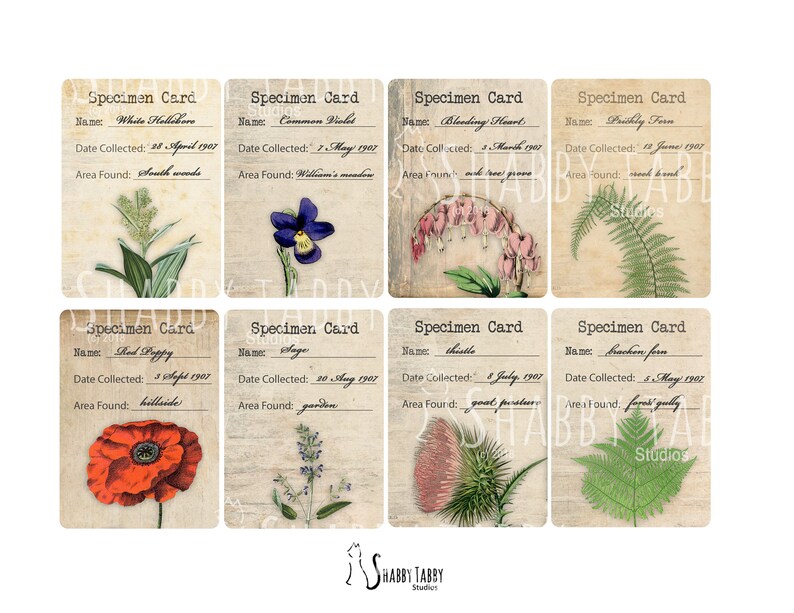 Specimen Card
Name: White Hellobore
Date Collected: 28 April 1907
Area Found: South woods
Specimen Card
Name: Common Violet
Date Collected: 7 May 1907
Area Found: William's meadow
Specimen Card
Name: Bleeding Heart
Date Collected: 3 March 1907
Area Found: oak tree grove
Specimen Card
Name: Prickly Fern
Date Collected: 12 June 1907
Area Found: creek bank
Specimen Card
Name: Red Poppy
Date Collected: 3 Sept 1907
Area Found: hillside
Specimen Card
Name: Sage
Date Collected: 20 Aug 1907
Area Found: garden
Specimen Card
Name: thistle
Date Collected: 8 July, 1907
Area Found: goat posture
Specimen Card
Name: bracken fern
Date Collected: 5 May 1907
Area Found: forest gully
SHABBY TABBY
Studios
© 2018
SHABBY TABBY
Studios